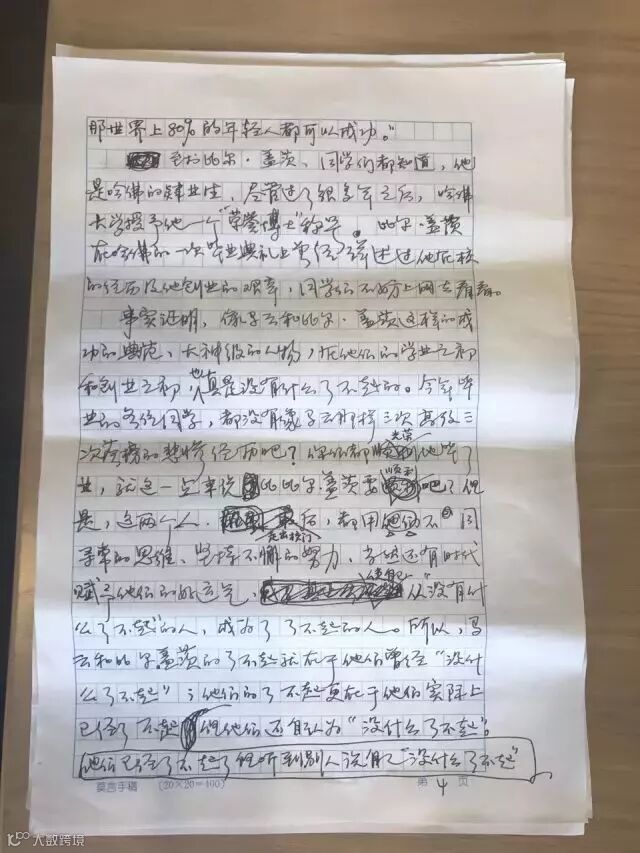 那世界上80%的年轻人都可以成功。"
至于比尔·盖茨，同学们都知道，他
是哈佛的肄业生，尽管过了很多年之后，哈佛
大学授予他一个"荣誉博士"称号。比尔·盖茨
在哈佛的一次毕业典礼上曾经详述过他在校
的经历及他创业的艰辛，同学们不妨上网去看看。
事实证明，像马云和比尔·盖茨这样的成
功的典范，大神级的人物，在他们的学业之初
和创业之初，也真是没有什么了不起的。今年毕
业的各位同学，都没有像马云那样三次高考三
次落榜的悲惨经历吧？你们都光荣地毕了
业，就这一点来说比比尔·盖茨要顺利吧？但
是，这两个人，走出校门后，都用他们不同
寻常的思维、坚持不懈的努力，当然还有时代
赋予他们的好运气，使自己从"没有什
么了不起"的人，成为了了不起的人。所以，马
云和比尔·盖茨的了不起就在于他们曾经"没什
么了不起"；他们的了不起更在于他们实际上
已经了不起但他们还自认为"没什么了不起"。
他们已经了不起了但听到别人说自己"没什么了不起"
莫言手稿 (20×20=400) 第4页
大数跨境